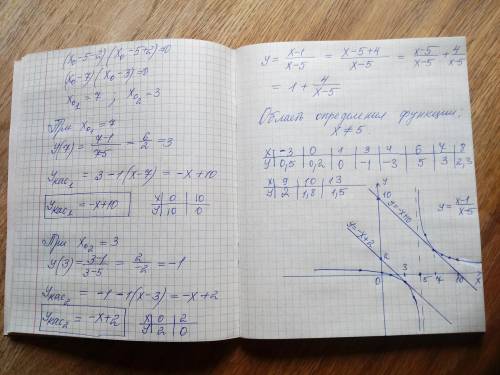 (x₀-5-2)(x₀-5+2)=0
(x₀-7)(x₀-3)=0
x₀₁=7 ; x₀₂=3
При x₀₁=7
y(7)=(7-1)/(7-5)=6/2=3
yкас₁=3-1(x-7)=-x+10
yкас₁=-x+10
x | 0 | 10
y | 10 | 0
При x₀₂=3
y(3)=(3-1)/(3-5)=2/-2=-1
yкас₂=-1-1(x-3)=-x+2
yкас₂=-x+2
x | 0 | 2
y | 2 | 0
y=(x-1)/(x-5)=(x-5+4)/(x-5)=(x-5)/(x-5)+4/(x-5)
=1+4/(x-5)
Область определения функции:
x≠5
x | -3 | 0 | 1 | 3 | 4 | 6 | 7 | 8
y | 0,5 | 0,2 | 0 | -1 | -3 | 5 | 3 | 2,3
x | 9 | 10 | 13
y | 2 | 1,8 | 1,5
y
10
y=-x+10
y=(x-1)/(x-5)
y=-x+2
2
0 3 5 7 10 x